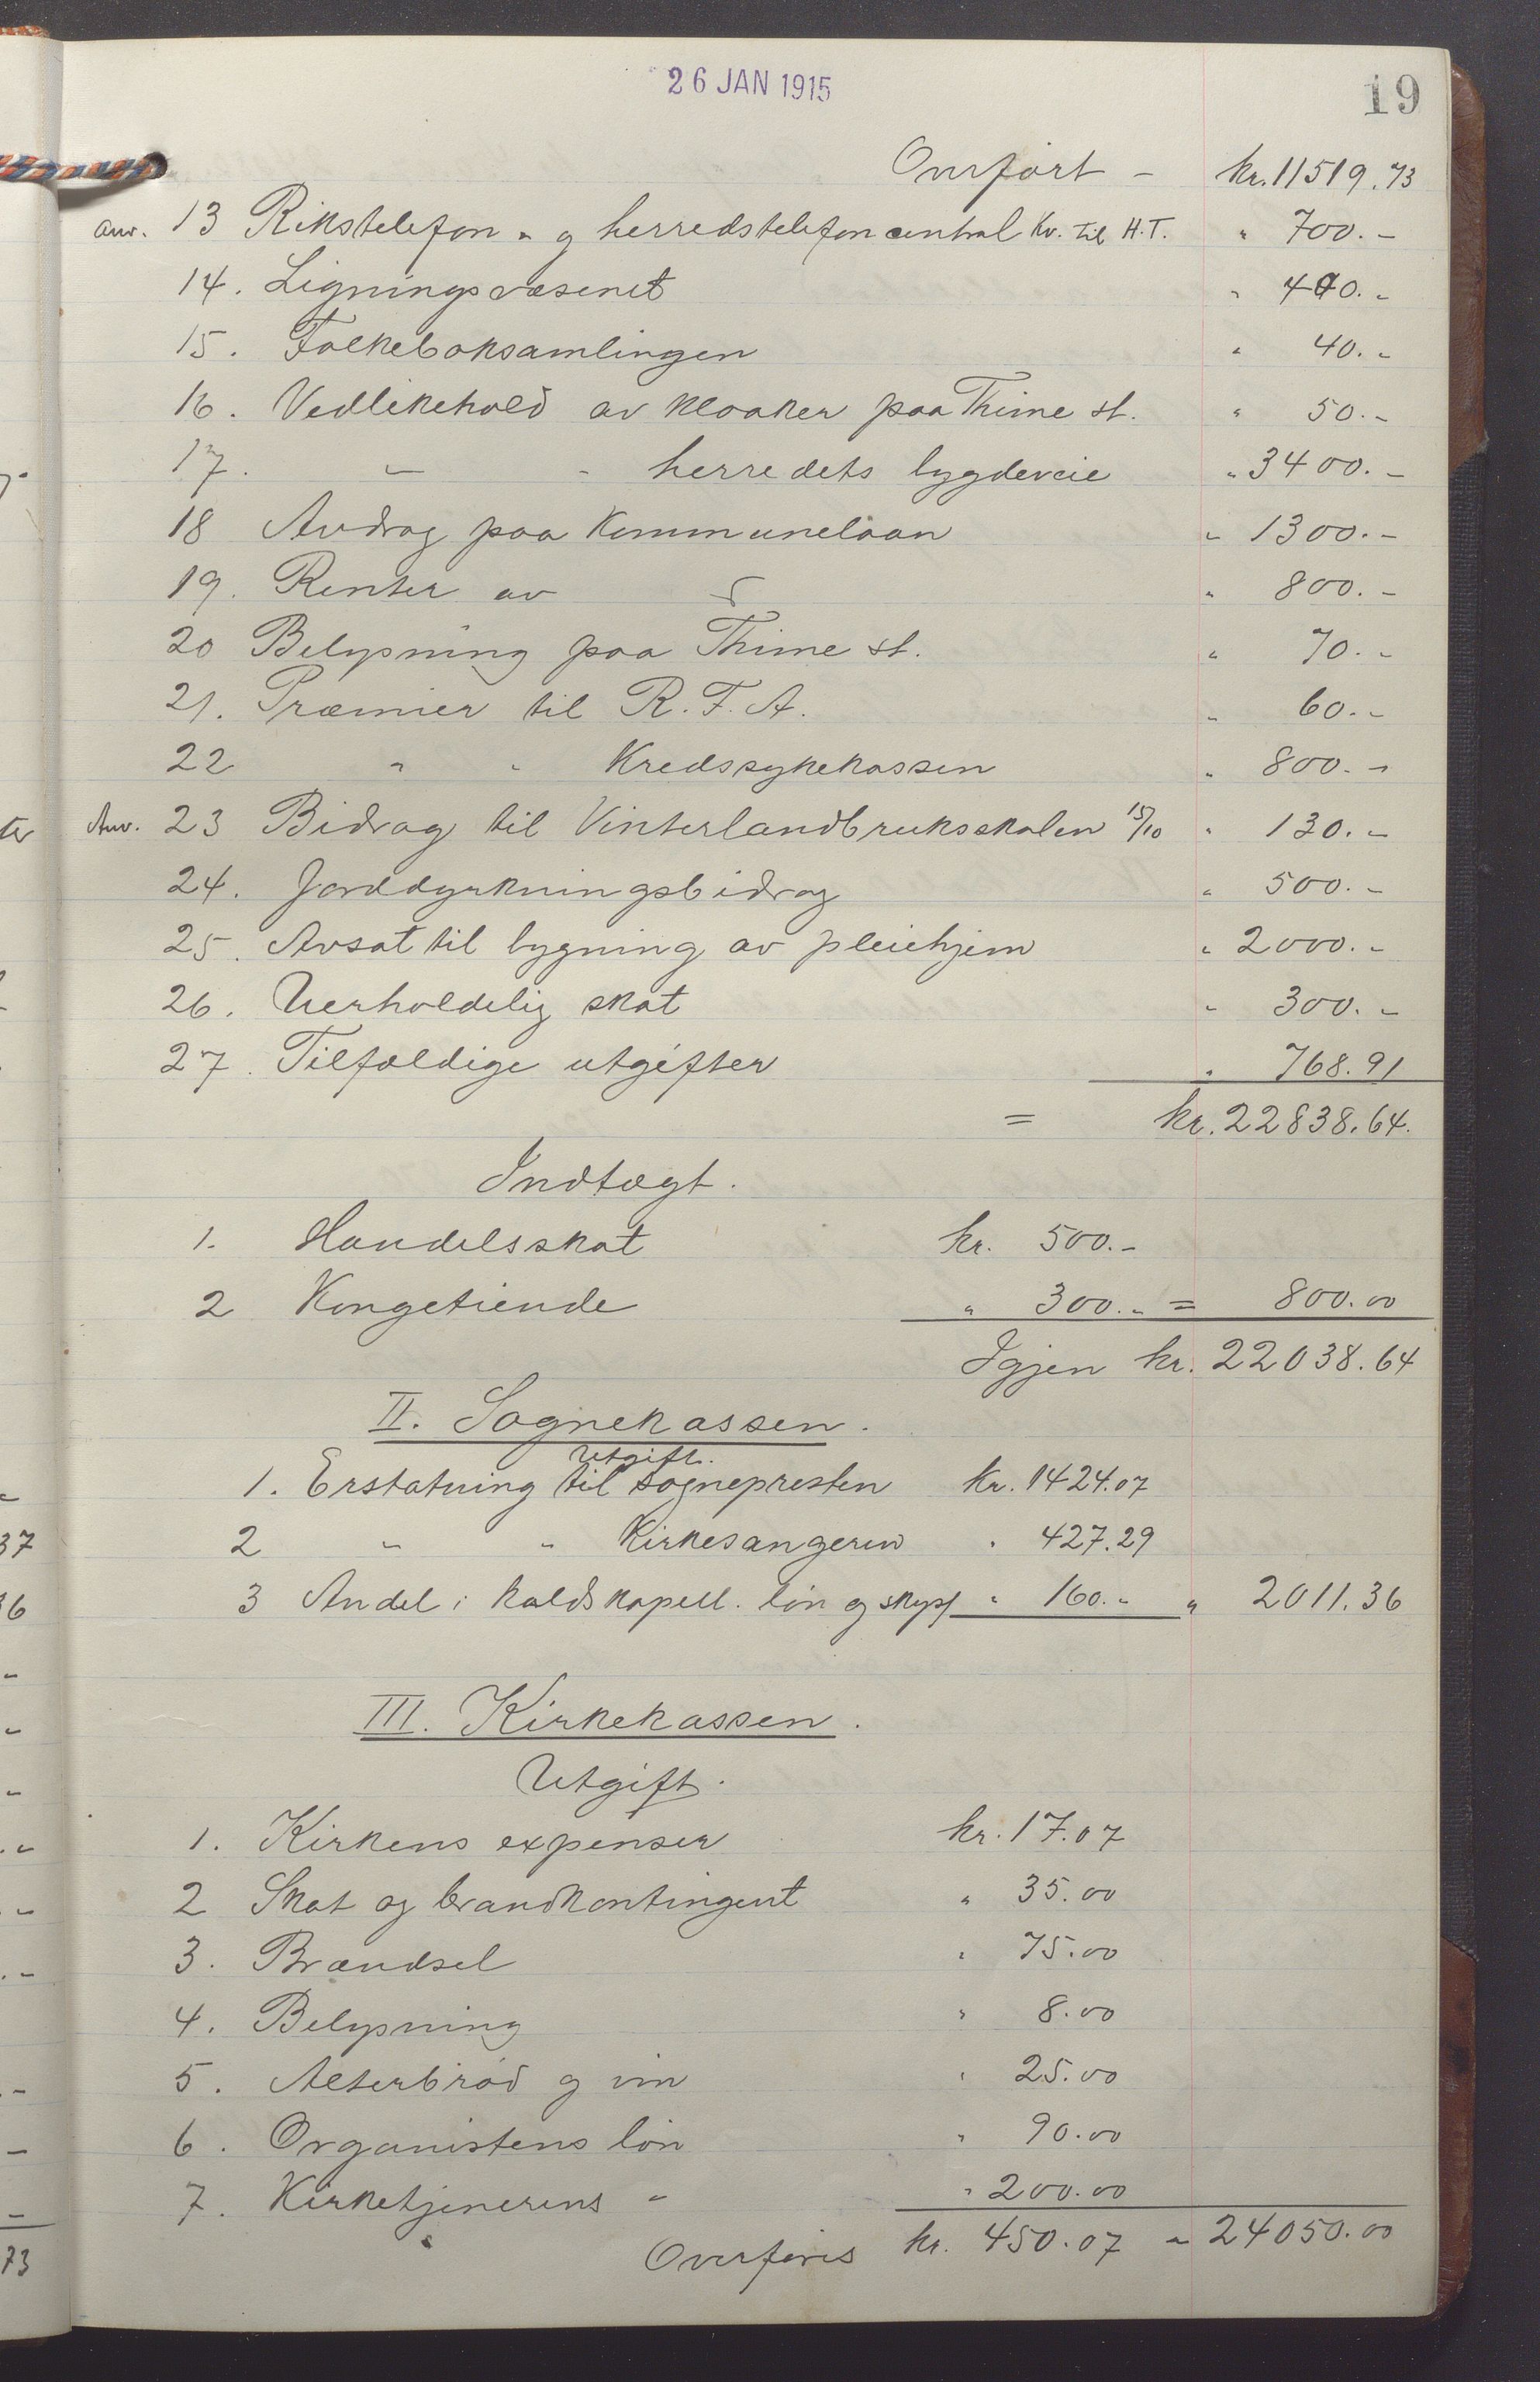 26 JAN 1915
19
Overført - kr. 11519.73
anv. 13 Rikstelefon - og herredstelefoncentral kv. til H.T. " 700.-
14. Ligningsvæsenet " 400.-
15. Folkeboksamlingen " 40.-
16. Vedlikehold av kloaker paa Thime st. " 50.-
17. " - herredets bygdeveie " 3400.-
18 Avdrag paa kommunelaan " 1300.-
19. Renter av " 800.-
20 Belysning paa Thime st. " 70.-
21. Præmier til R.F.A. " 60.-
22 " " Kredssykekassen " 800.-
Anv. 23 Bidrag til Vinterlandbruksskolen 15/10 " 130.-
24. Jorddyrkningsbidrag " 500.-
25. Avsat til bygning av pleiehjem " 2000.-
26. Uerholdelig skat " 300.-
27. Tilfældige utgifter " 768.91
= kr. 22838.64.
Indtægt.
1. Handelsskat kr. 500.-
2 Kongetiende " 300.- = 800.00
Igjen kr. 22038.64
II. Sognekassen.
Utgift.
1. Erstatning til sognepresten kr. 1424.07
2 " " Kirkesangeren " 427.29
3 Andel i kaldskapell. løn og skyss " 160.- " 2011.36
III. Kirkekassen.
Utgift.
1. Kirkens expenser kr. 17.07
2 Skat og brandkontingent " 35.00
3. Brændsel " 75.00
4. Belysning " 8.00
5. Alterbrød og vin " 25.00
6. Organistens løn " 90.00
7. Kirketjenerens " " 200.00
Overføres kr. 450.07 - 24050.00
37
36
73